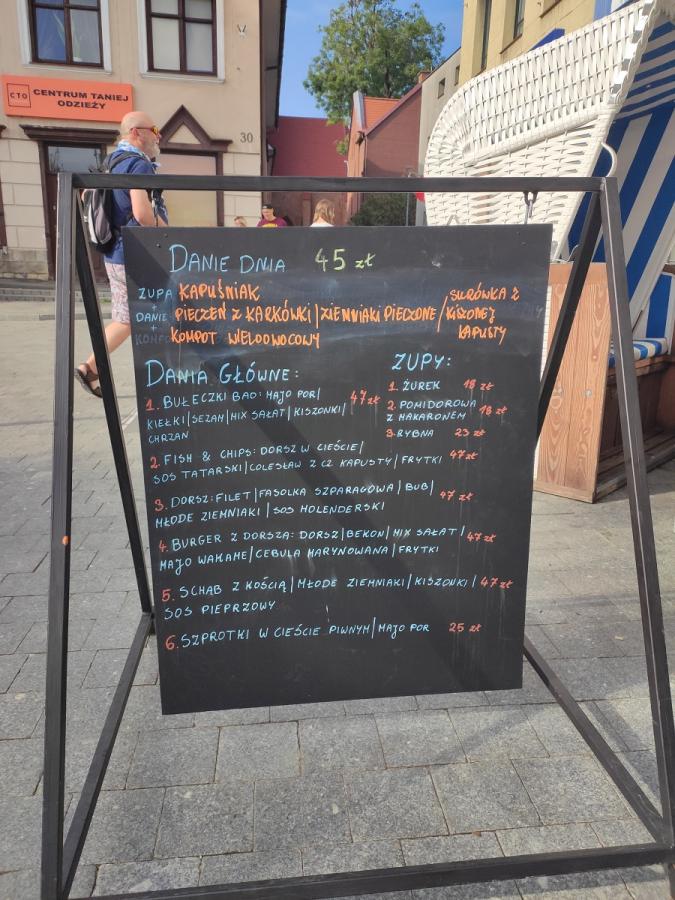 CTO CENTRUM TANIEJ
ODZIEŻY
30
DANIE DNIA 45 zł
ZUPA KAPUŚNIAK
+
DANIE PIECZEŃ Z KARKÓWKI | ZIEMNIAKI PIECZONE / SURÓWKA Z
KISZONEJ
KAPUSTY
+
KOMPOT KOMPOT WIELOOWOCOWY
DANIA GŁÓWNE:
1. BUŁECZKI BAO: MAJO POR | 47 zł
KIEŁKI | SEZAM | MIX SAŁAT | KISZONKI |
CHRZAN
2. FISH & CHIPS: DORSZ W CIEŚCIE |
SOS TATARSKI | COLESŁAW Z CZ KAPUSTY | FRYTKI 47 zł
3. DORSZ: FILET | FASOLKA SZPARAGOWA | BUB | 47 zł
MŁODE ZIEMNIAKI | SOS HOLENDERSKI
4. BURGER Z DORSZA: DORSZ | BEKON | MIX SAŁAT | 47 zł
MAJO WAKAME | CEBULA MARYNOWANA | FRYTKI
5. SCHAB Z KOŚCIĄ | MŁODE ZIEMNIAKI | KISZONKI | 47 zł
SOS PIEPRZOWY
6. SZPROTKI W CIEŚCIE PIWNYM | MAJO POR 25 zł
ZUPY:
1. ŻUREK 18 zł
2. POMIDOROWA
Z MAKARONEM 18 zł
3. RYBNA 23 zł